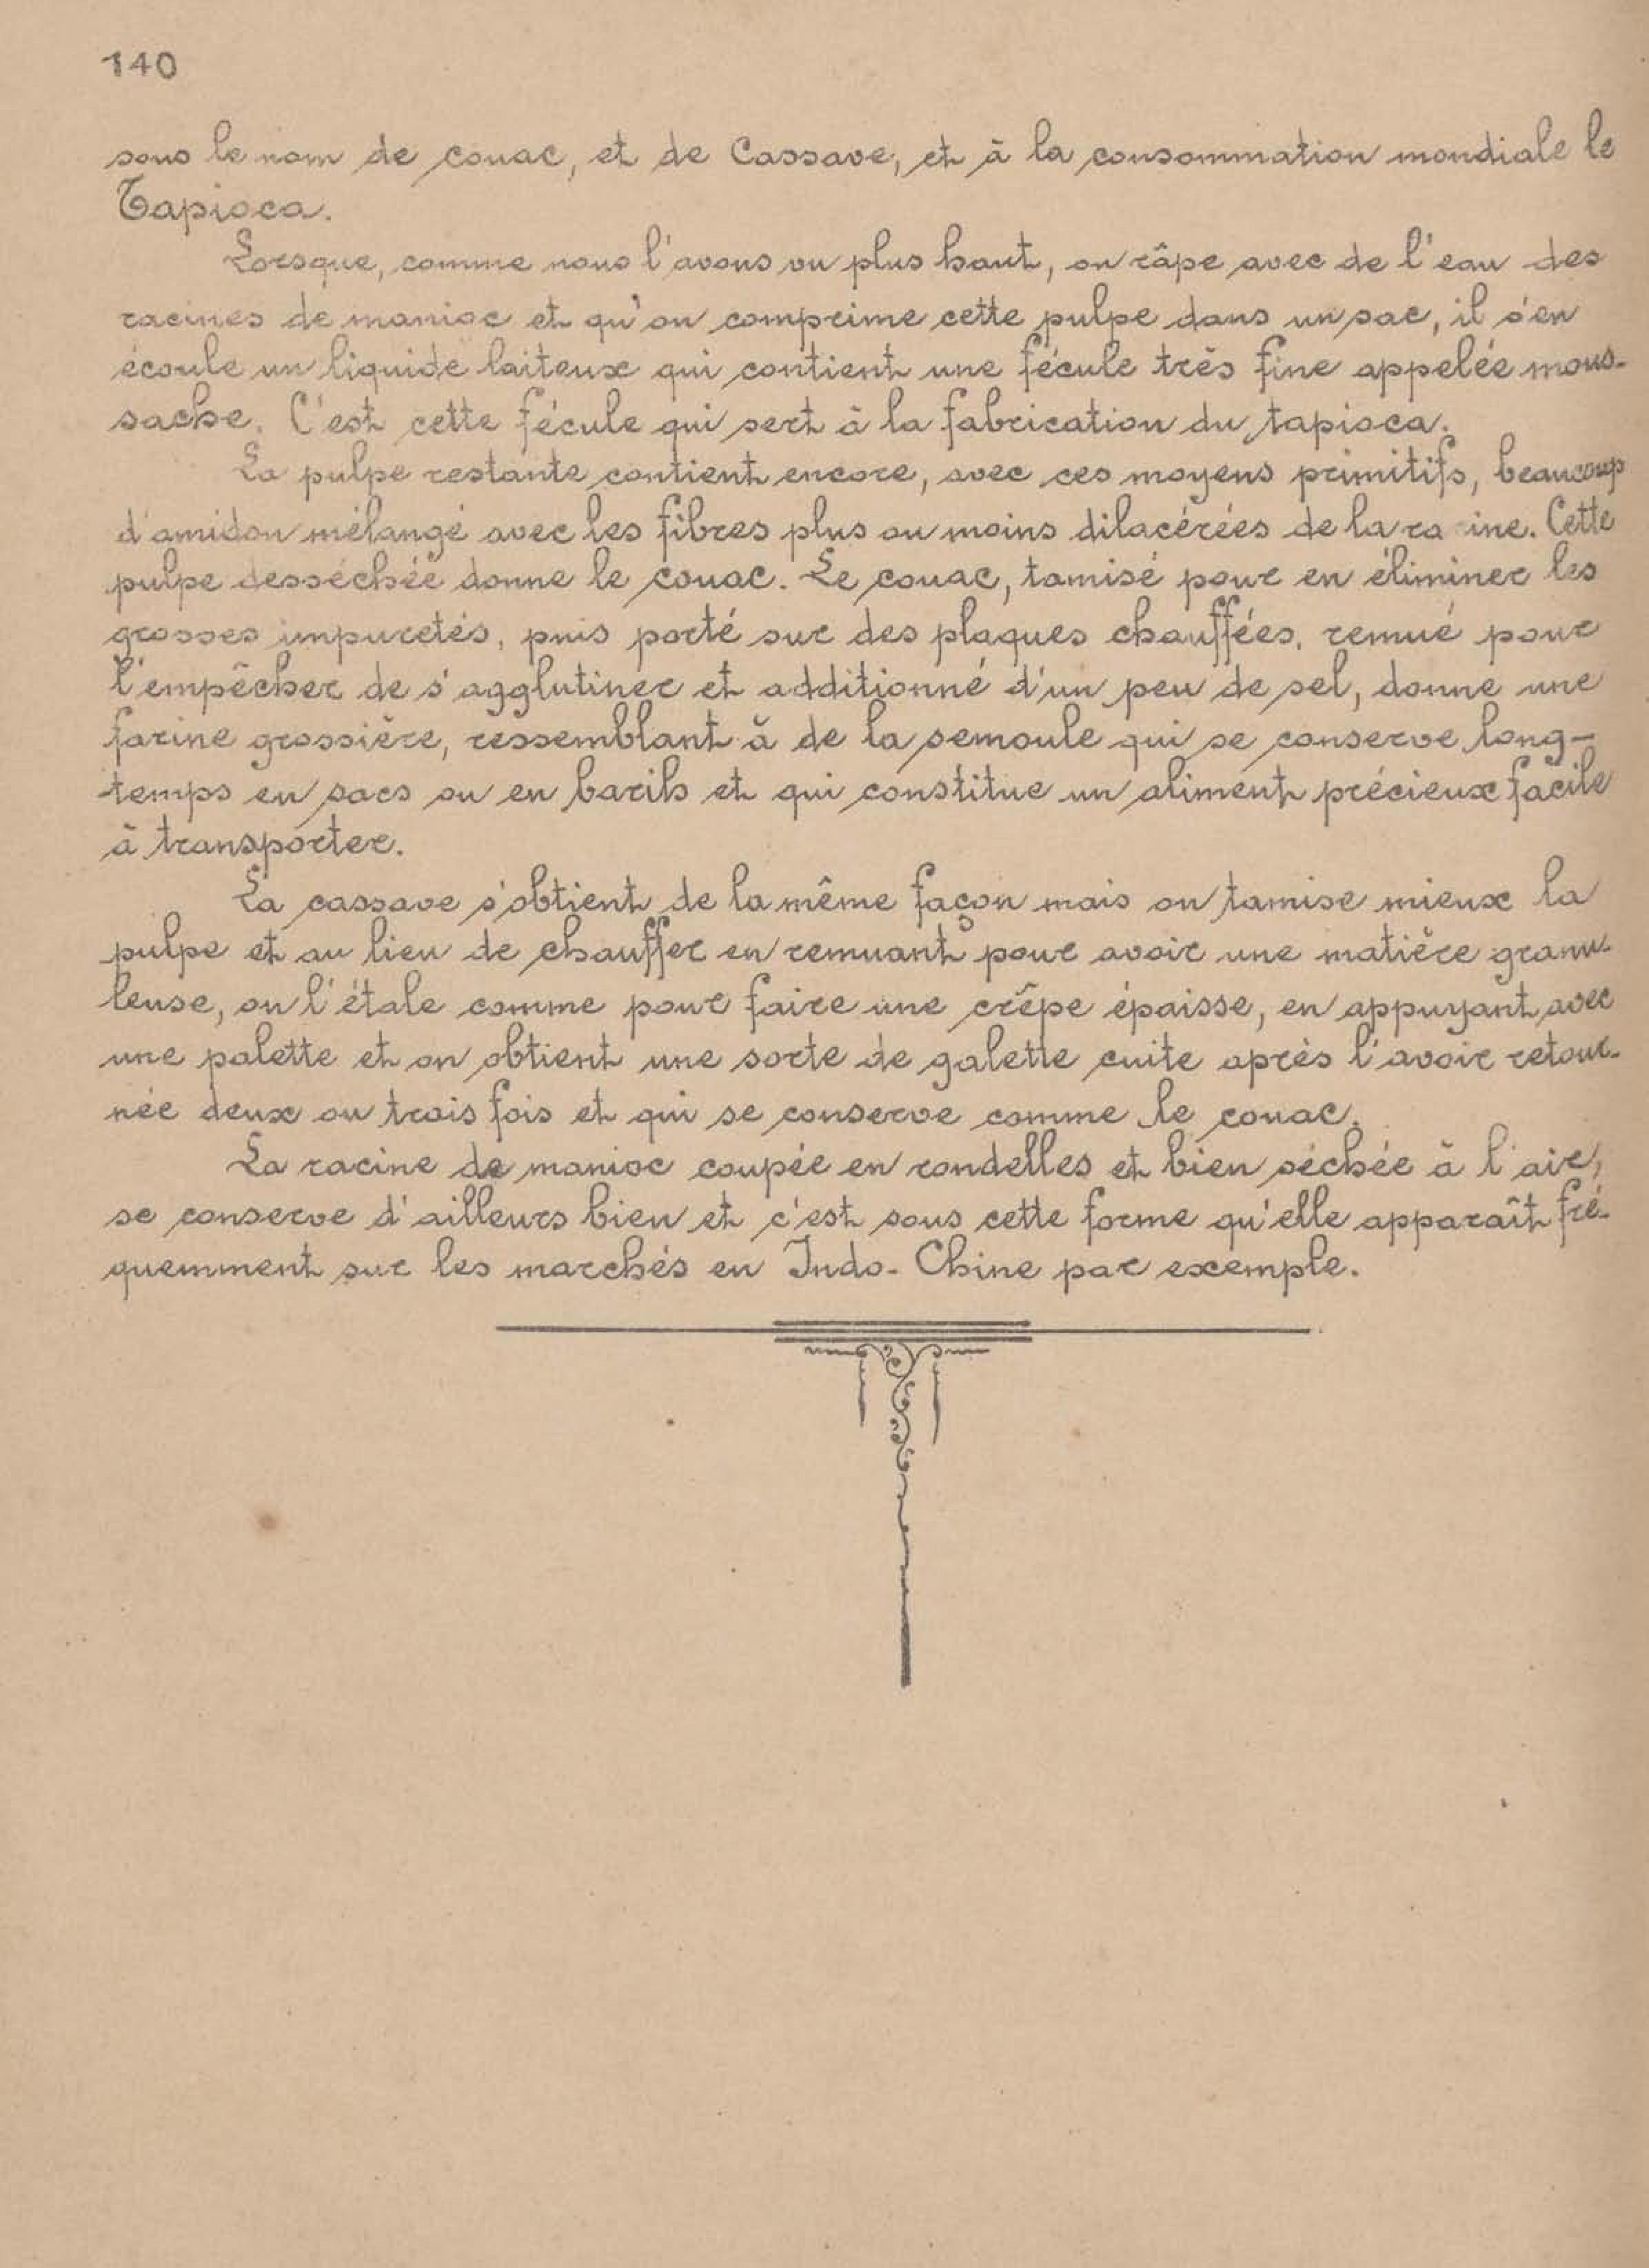 140
sous le nom de couac, et de Cassave, et à la consommation mondiale le
Tapioca.
Lorsque, comme nous l'avons vu plus haut, on râpe avec de l'eau des
racines de manioc et qu'on comprime cette pulpe dans un sac, il s'en
écoule un liquide laiteux qui contient une fécule très fine appelée mous-
sache. C'est cette fécule qui sert à la fabrication du tapioca.
La pulpe restante contient encore, avec ces moyens primitifs, beaucoup
d'amidon mélangé avec les fibres plus ou moins dilacérées de la ra ine. Cette
pulpe desséchée donne le couac. Le couac, tamisé pour en éliminer les
grosses impuretés, puis porté sur des plaques chauffées, remué pour
l'empêcher de s'agglutiner et additionné d'un peu de sel, donne une
farine grossière, ressemblant à de la semoule qui se conserve long-
temps en sacs ou en barils et qui constitue un aliment précieux facile
à transporter.
La cassave s'obtient de la même façon mais on tamise mieux la
pulpe et au lieu de chauffer en remuant pour avoir une matière granu-
leuse, on l'étale comme pour faire une crêpe épaisse, en appuyant avec
une palette et on obtient une sorte de galette cuite après l'avoir retour-
née deux ou trois fois et qui se conserve comme le couac.
La racine de manioc coupée en rondelles et bien séchée à l'air,
se conserve d'ailleurs bien et c'est sous cette forme qu'elle apparaît fré-
quemment sur les marchés en Indo-Chine par exemple.